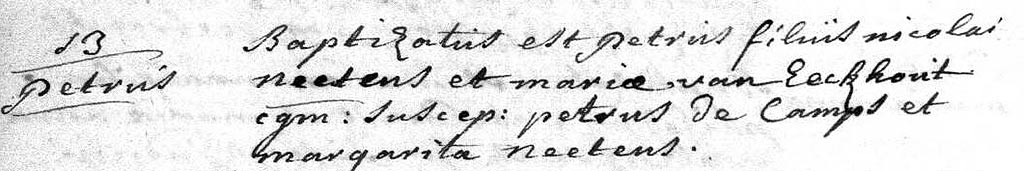 13
Petrus
Baptizatus est petrus filius nicolai
neetens et mariæ van Eeckhout
cgm: suscep: petrus de Camps et
margarita neetens.